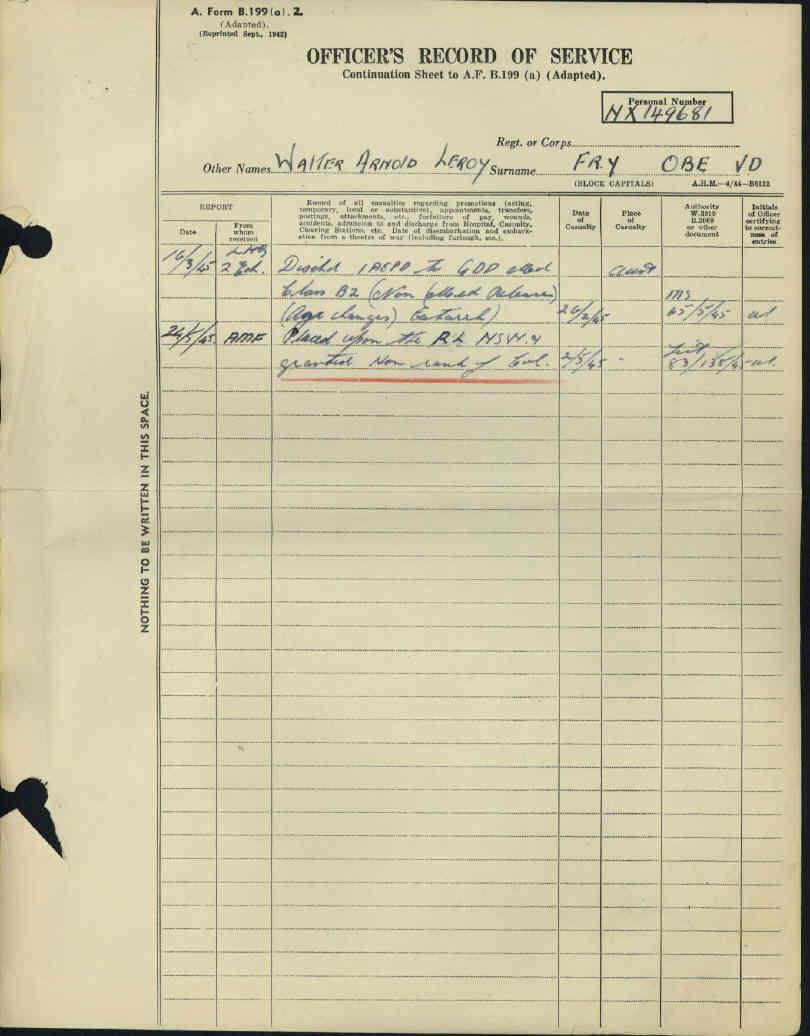 A. Form B.199(a).2
(Adapted).
(Reprinted Sept., 1942)
OFFICER'S RECORD OF SERVICE
Continuation Sheet to A.F. B.199 (a) (Adapted).
Personal Number
NX149681
Regt. or Corps
Other Names WALTER ARNOLD LEROY Surname FRY OBE VD
(BLOCK CAPITALS) A.H.M.—4/44—B6132
REPORT
Date
From whom received
Record of all casualties regarding promotions (acting, temporary, local or substantive), appointments, transfers, postings, attachments, etc., forfeiture of pay, wounds, accidents, admission to and discharge from Hospital, Casualty, Clearing Stations, etc. Date of disembarkation and embarkation from a theatre of war (including furlough, etc.).
Date of Casualty
Place of Casualty
Authority W.3010 B.2069 or other document
Initials of Officer certifying to correctness of entries
16/3/45 LHQ 2 Ech. to GDD Aust
Class B2 (Non MS
(Age changes) 65/5/45
24/5/45 AMF Placed upon the R L NSW &
granted Hon rank of Col. 2/5/45 - 83/135/45
NOTHING TO BE WRITTEN IN THIS SPACE.